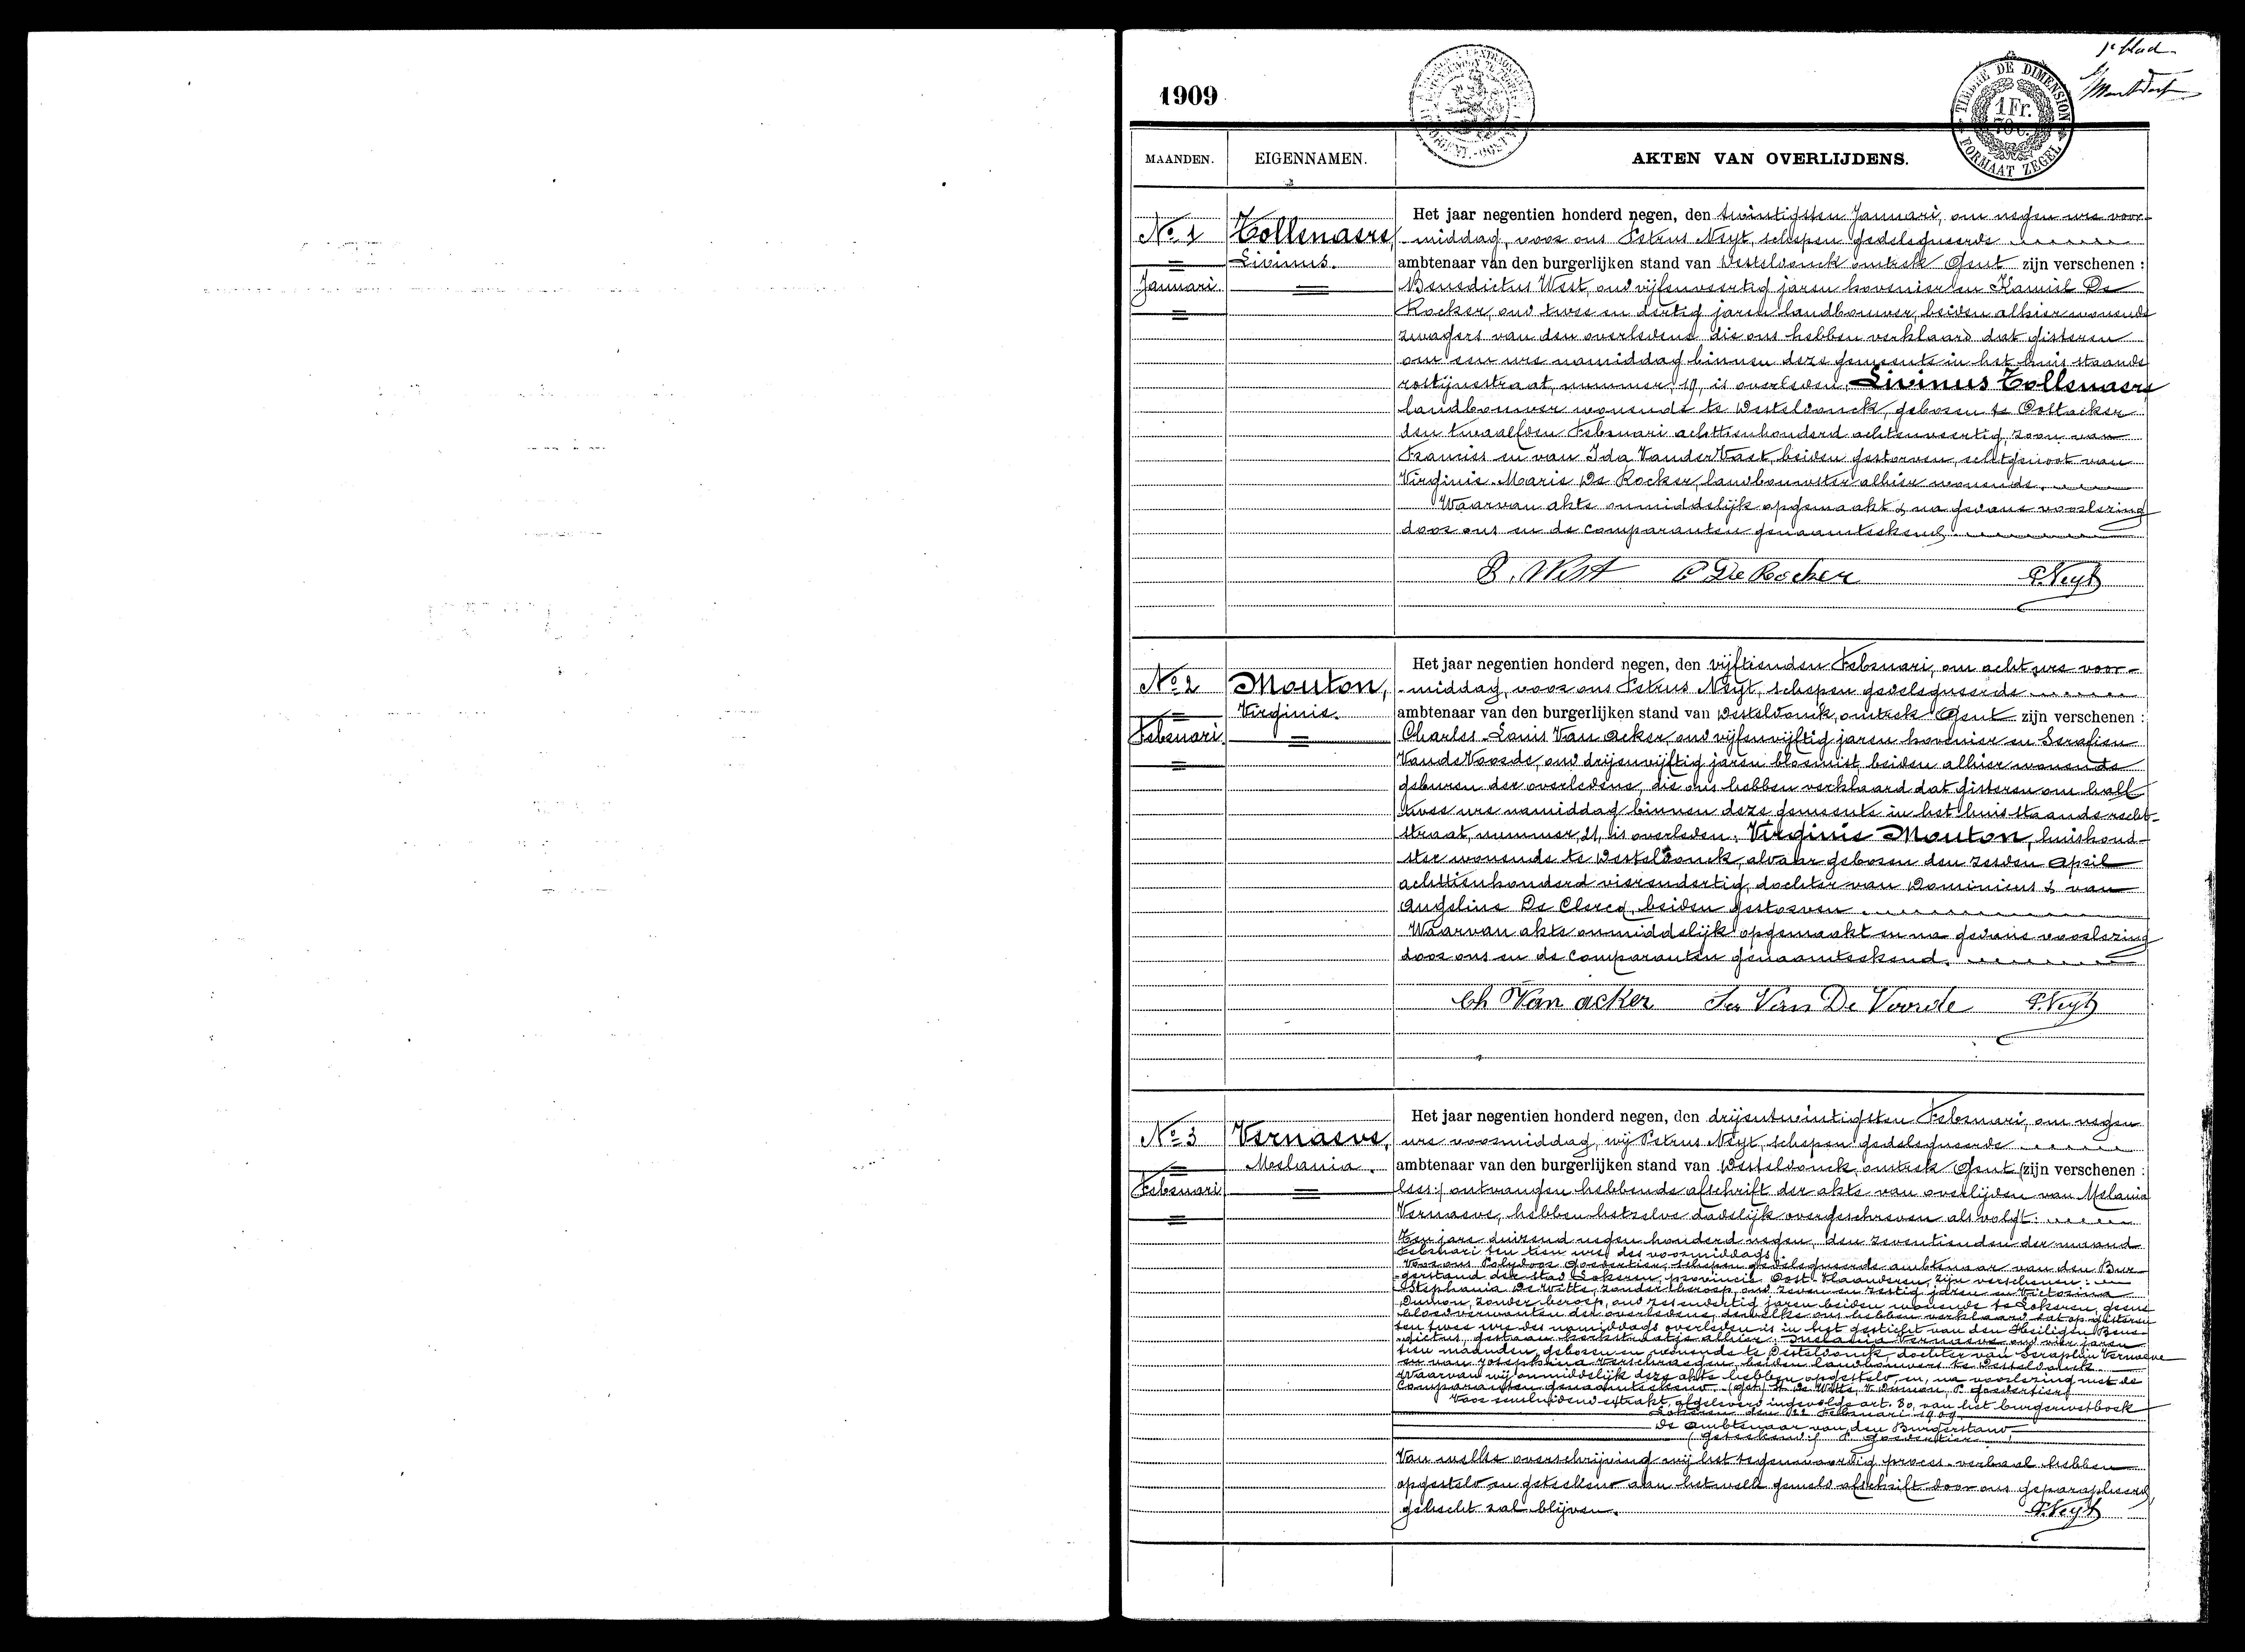 1e blad
1909
TIMBRE DE DIMENSION
1 Fr.
70 c.
FORMAAT ZEGEL
MAANDEN. EIGENNAMEN. AKTEN VAN OVERLIJDENS.
No 1
Januari.
Tollenaere,
Livinus.
Het jaar negentien honderd negen, den twintigsten Januari, om negen ure voor-
-middag, voor ons Petrus Neyt, schepen gedelegueerde
ambtenaar van den burgerlijken stand van Desteldonck, omtrek Gent zijn verschenen :
Benedictus West, oud vijfenveertig jaren hovenier en Kamiel De
Rocker, oud twee en dertig jaren landbouwer, beiden alhier wonende
zwagers van den overledene die ons hebben verklaard dat gisteren
om een ure namiddag binnen deze gemeente in het huis staande
rostijnestraat, nummer, 19, is overleden, Livinus Tollenaere
landbouwer wonende te Desteldonck, geboren te Oostacker
den twaalfden Februari achttienhonderd achtenveertig, zoon van
Francies en van Ida VanderVaet, beiden gestorven, echtgenoot van
Virginie-Marie De Rocker, landbouwster alhier wonende.
Waarvan akte onmiddelijk opgemaakt & na gedane voorlezing
door ons en de comparanten genaamteekend.
B. West P De Rocker P. Neyt
No 2
Februari.
Mouton,
Virginie.
Het jaar negentien honderd negen, den vijftienden Februari, om acht ure voor-
-middag, voor ons Petrus Neyt, schepen gedelegueerde
ambtenaar van den burgerlijken stand van Desteldonck, omtrek Gent zijn verschenen :
Charles-Louis Van acker, oud vijfenvijftig jaren hovenier en Serafien
VandeVoorde, oud drijenvijftig jaren bloemist beiden alhier wonende
geburen der overledene, die ons hebben verklaard dat gisteren om half
twee ure namiddag binnen deze gemeente in het huis staande recht-
straat, nummer, 21, is overleden: Virginie Mouton, huishoud-
ster wonende te Desteldonck, aldaar geboren den zesden April
achttienhonderd vierendertig, dochter van Dominicus & van
Angeline De Clercq, beiden gestorven
Waarvan akte onmiddelijk opgemaakt en na gedane voorlezing
door ons en de comparanten genaamteekend.
Ch Van acker Ser Van De Voorde P. Neyt
No 3
Februari
Vernaeve,
Melania.
Het jaar negentien honderd negen, den drijentwintigsten Februari, om negen
ure voormiddag, wij Petrus Neyt, schepen gedelegueerde
ambtenaar van den burgerlijken stand van Desteldonck, omtrek Gent (zijn verschenen :
lees:) ontvangen hebbende afschrift der akte van overlijden van Melania
Vernaeve, hebben hetzelve dadelijk overgeschreven als volgt:
Ten jare duizend negen honderd negen, den zeventienden der maand
Februari ten tien ure des voormiddags.
Voor ons Polydoor Goedertier, schepen gedelegueerde ambtenaar van den Bur-
gerstand der stad Lokeren, provincie Oost-Vlaanderen, zijn verschenen:
Stephania De Witte, zonder beroep, oud zeven en zestig jaren en Victorina
Dumon, zonder beroep, oud zesendertig jaren beiden wonende te Lokeren, geene
bloedverwanten der overledene, dewelke ons hebben verklaard dat op gisteren
ten twee ure des namiddags overleden is in het gesticht van den Heiligen Bene-
-dictus, gestaan kerkstraatje alhier: Melania Vernaeve oud vier jaren
tien maanden, geboren en wonende te Desteldonck, dochter van Seraphin Vernaeve
en van Josephina Verschraegen, beiden landbouwers te Desteldonck.
Waarvan wij onmiddelijk deze akte hebben opgesteld, en, na voorlezing met de
Comparanten genaamteekend. (get) St De Witte, V. Dumon, P. Goedertier
Voor eensluidend extrakt, afgeleverd ingevolge art. 80, van het burgerwetboek
Lokeren den 22 Februari 1909
De Ambtenaar van den Burgerstand,
(geteekend) P Goedertier
Van welke overschrijving wij het tegenwoordig proces-verbaal hebben
opgesteld en geteekend aan hetwelk gemeld afschrift door ons geparapheerd,
gehecht zal blijven. P. Neyt